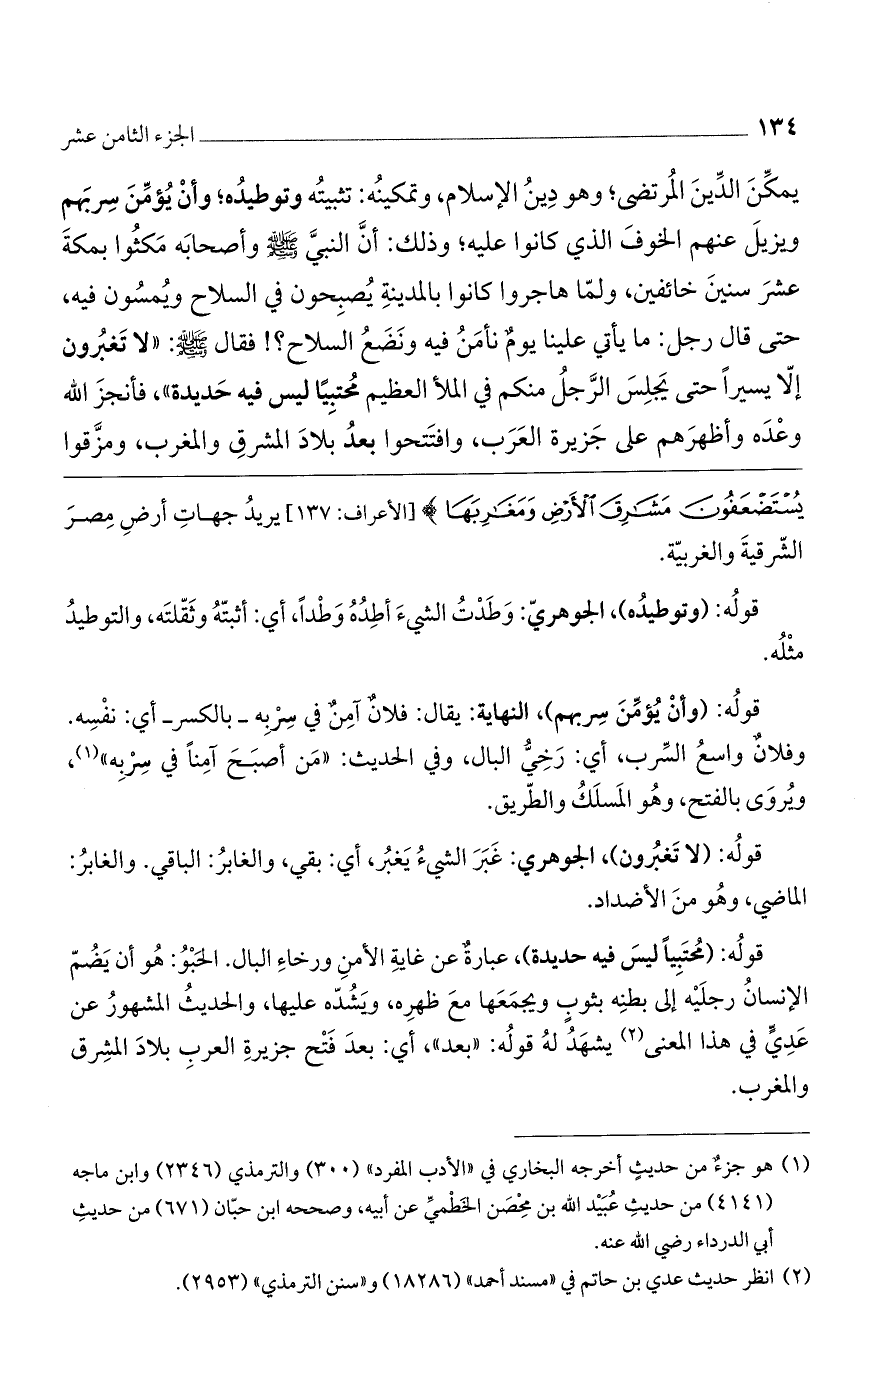 ١٣٤ ـــــــــــــــــــــــــــــــــــــــــــــــــ الجزء الثامن عشر
يمكِّنَ الدِّينَ المُرتضى؛ وهو دِينُ الإسلام، وتمكينُه: تثبيتُه وتوطيدُه؛ وأنْ يُؤمِّنَ سِربَهم
ويزيلَ عنهم الخوفَ الذي كانوا عليه؛ وذلك: أنَّ النبيَّ ﷺ وأصحابَه مَكثُوا بمكةَ
عشرَ سنينَ خائفين، ولمّا هاجروا كانوا بالمدينةِ يُصبِحون في السلاح ويُمسُون فيه،
حتى قال رجل: ما يأتي علينا يومٌ نأمَنُ فيه ونَضَعُ السلاح؟! فقال ﷺ: «لا تَغبُرون
إلّا يسيراً حتى يَجلِسَ الرَّجلُ منكم في الملأ العظيم مُحتبِيًا ليس فيه حَديدة»، فأنجزَ الله
وعْدَه وأظهرَهم على جَزيرة العَرَب، وافتَتحوا بعدُ بلادَ المشرقِ والمغرب، ومزَّقوا
يُسْتَضْعَفُونَ مَشَارِقَ ٱلْأَرْضِ وَمَغَارِبَهَا ﴾ [الأعراف: ١٣٧] يريدُ جهاتِ أرضِ مِصرَ
الشّرقيةَ والغربيّة.
قولُه: (وتوطيدُه)، الجوهريّ: وَطَدْتُ الشيءَ أطِدُهُ وَطْداً، أي: أثبتّهُ وثَقّلتَه، والتوطيدُ
مثْلُه.
قولُه: (وأنْ يُؤمِّنَ سِربهم)، النهاية: يقال: فلانٌ آمِنٌ في سِرْبِه ـ بالكسرـ أي: نفْسِه.
وفلانٌ واسعُ السِّرب، أي: رَخِيُّ البال، وفي الحديث: «مَن أصبَحَ آمِناً في سِرْبِه»(١)،
ويُروَى بالفتح، وهُو المَسلَكُ والطّريق.
قولُه: (لا تَغبُرون)، الجوهري: غَبَرَ الشيءُ يَغبُر، أي: بقي، والغابرُ: الباقي. والغابرُ:
الماضي، وهُو منَ الأضداد.
قولُه: (مُحتَبِياً ليسَ فيه حديدة)، عبارةٌ عن غايةِ الأمنِ ورخاءِ البال. الحَبْوُ: هُو أن يَضُمّ
الإنسانُ رجلَيْه إلى بطنِه بثوبٍ ويجمَعَها معَ ظهرِه، ويَشُدّه عليها، والحديثُ المشهورُ عن
عَدِيٍّ في هذا المعنى(٢) يشهَدُ لهُ قولُه: «بعد»، أي: بعدَ فَتْح جزيرةِ العربِ بلادَ المشِرق
والمغرب.
(١) هو جزءٌ من حديثٍ أخرجه البخاري في «الأدب المفرد» (٣٠٠) والترمذي (٢٣٤٦) وابن ماجه
(٤١٤١) من حديثِ عُبَيْد الله بن مِحْصَن الخَطْميِّ عن أبيه، وصححه ابن حبّان (٦٧١) من حديثِ
أبي الدرداء رضي الله عنه.
(٢) انظر حديث عدي بن حاتم في «مسند أحمد» (١٨٢٨٦) و«سنن الترمذي» (٢٩٥٣).